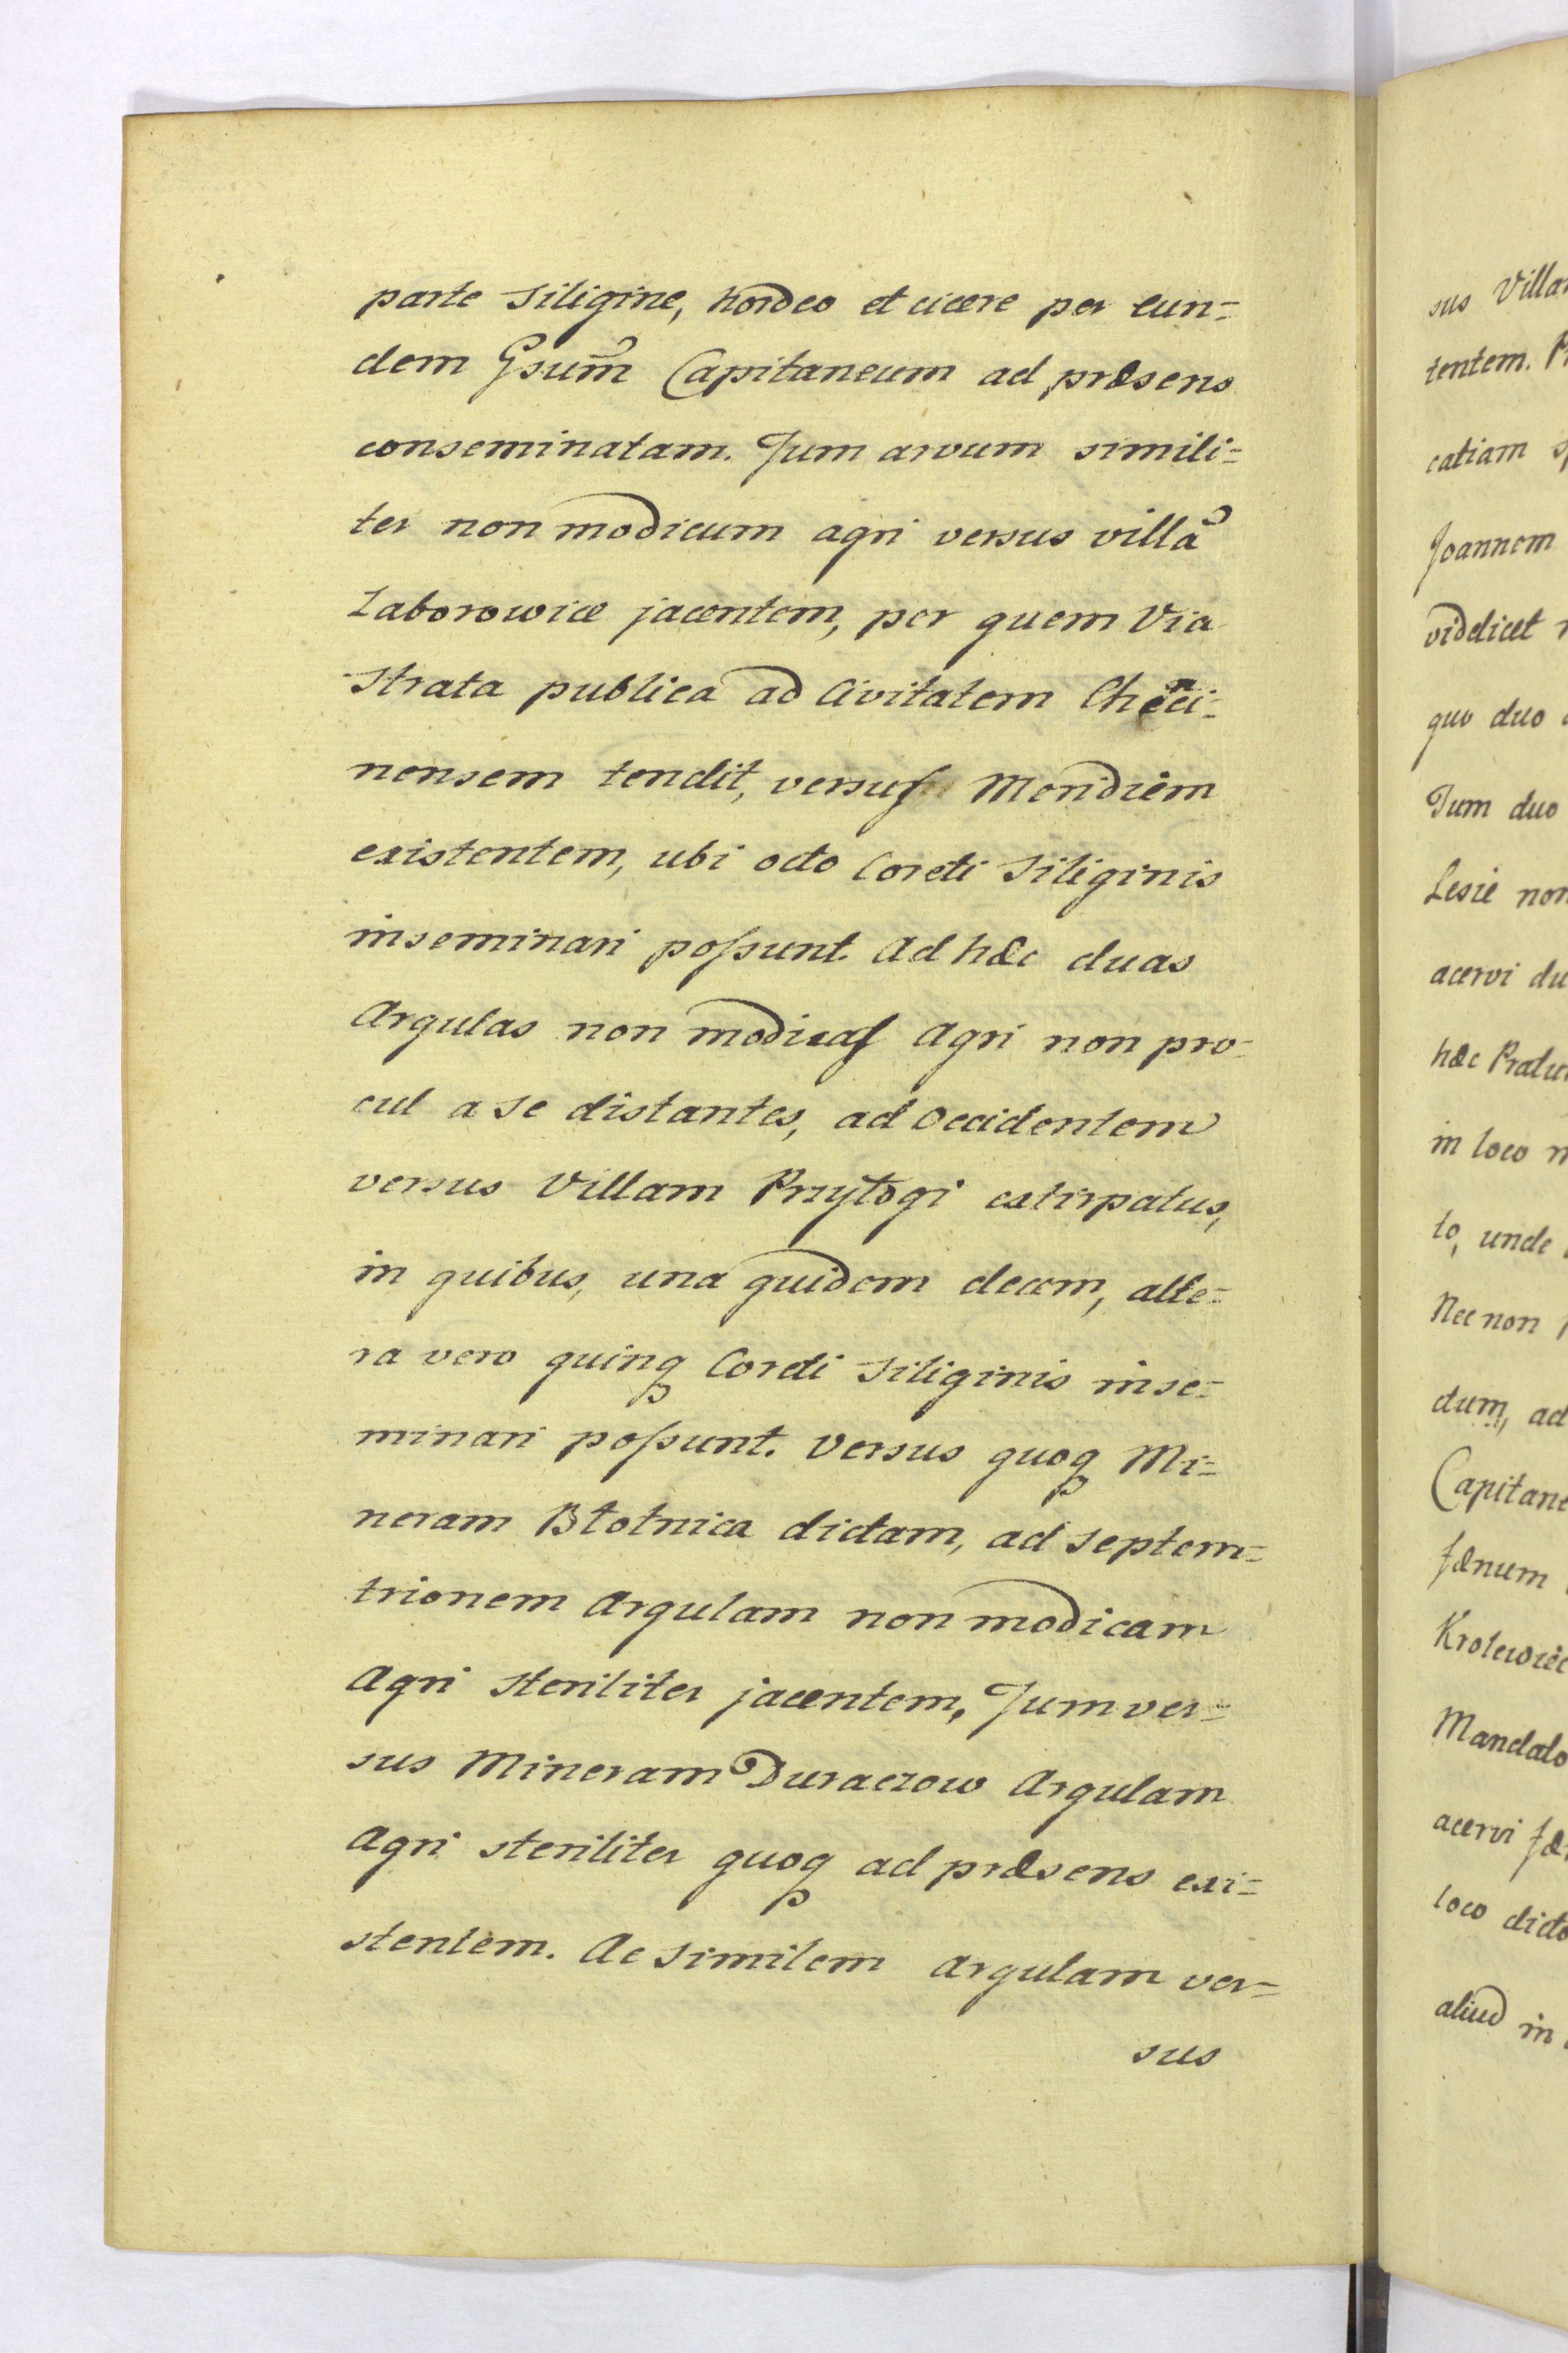 parte siligine, hordeo et cicere per eun=
dem Gsum̃ Capitaneum ad præsens
conseminatam. Tum arvum simili=
ter non modicum agri versus villã
Zaborowice jacentem, per quem Via
strata publica ad Civitatem Chęci=
nensem tendit, versus Meridiem
existentem, ubi octo Coreti siliginis
inseminari possunt. Ad hæc duas
Argulas non modicas Agri non pro=
cul a se distantes, ad Occidentem
versus Villam Przyłogi extirpatus,
in quibus, una quidem decem, alte=
ra vero quinq Coreti siliginis inse=
minari possunt. Versus quoq Mi=
neram Błotnica dictam, ad septem=
trionem Argulam non modicam
Agri steriliter jacentem, Tum ver=
sus Mineram Duraczow Argulam
Agri steriliter quoq ad præsens exi=
stentem. Ac similem Argulam ver=
sus
sus
tentem.
catiam
Joannem
videlicet
quo duo
Tum duo
Lesie
acervi
hæc
in loco
to, unde
Nec non
dum, ad
fænum
acervi
loco
aliud in